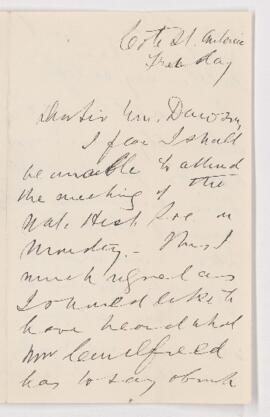 Cote St. Antoine
Friday
Dear Sir Wm. Dawson,
I fear I shall
be unable to attend
the meeting of the
Nat. Hist. Soc. on
Monday. This I
much regret as
I should like to
have heard what
Mr
has to say about